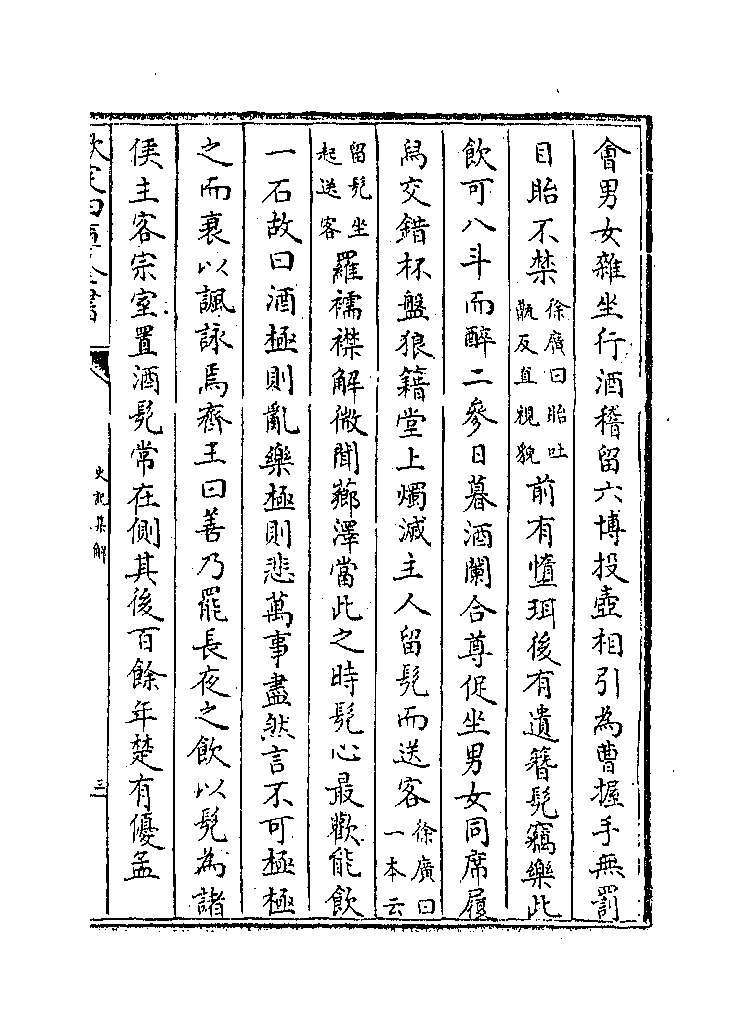 會男女雜坐行酒稽留六博投壺相引為曹握手無罰
目眙不禁徐廣曰眙吐甑反直視貌前有墮珥後有遺簪髠竊樂此
飲可八斗而醉二參日暮酒闌合尊促坐男女同席履
舄交錯杯盤狼籍堂上燭滅主人留髠而送客徐廣曰一本云
留髠坐起送客羅襦襟解微聞薌澤當此之時髠心最歡能飲
一石故曰酒極則亂樂極則悲萬事盡然言不可極極
之而衰以諷詠焉齊王曰善乃罷長夜之飲以髠為諸
侯主客宗室置酒髠常在側其後百餘年楚有優孟
欽定四庫全書
史記集解
三